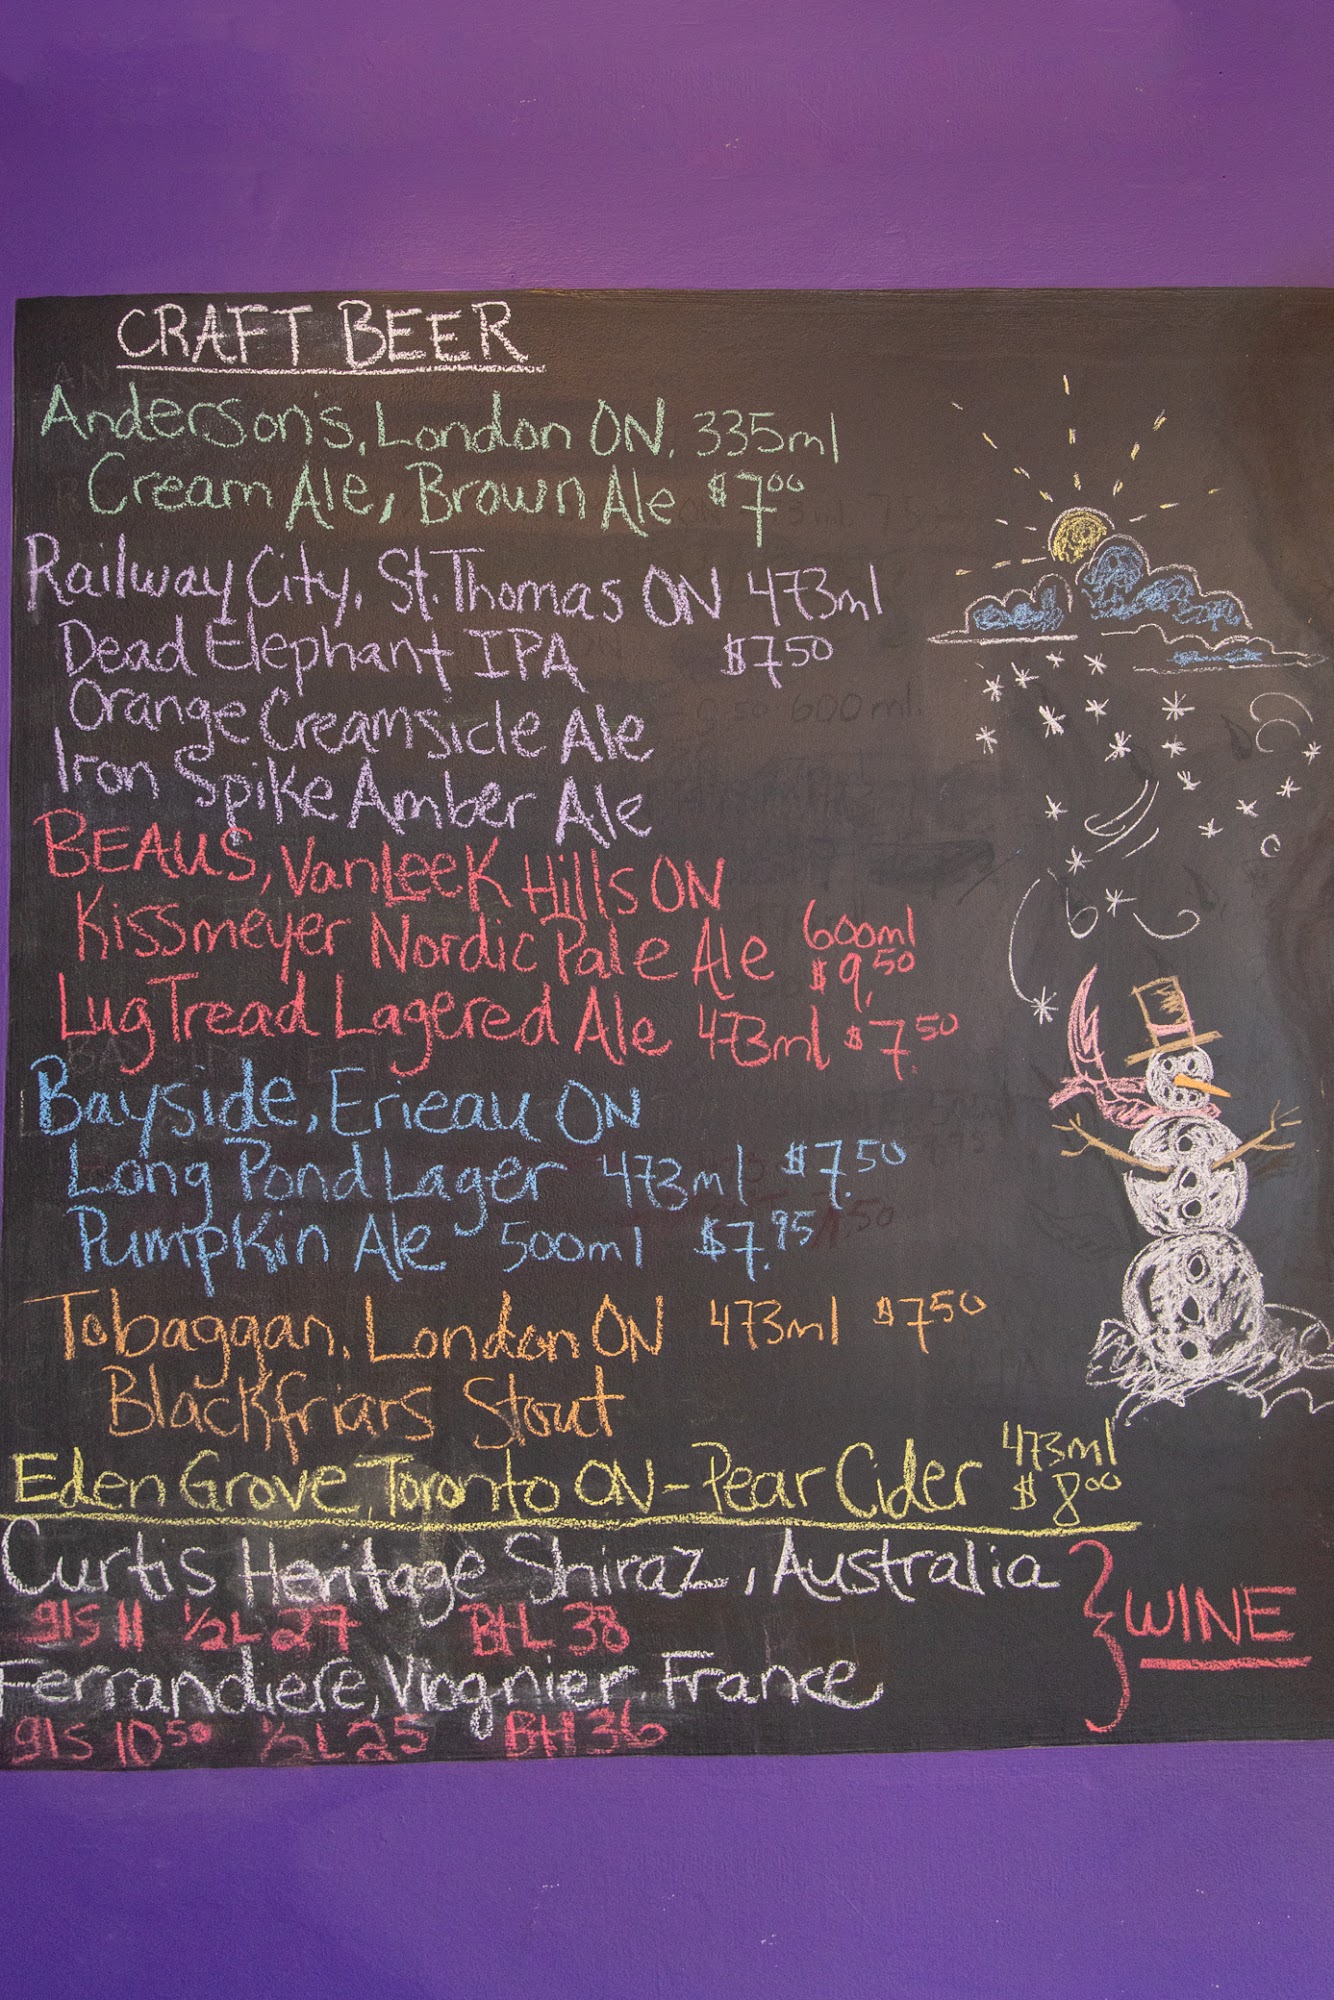 CRAFT BEER
Anderson's, London ON, 335ml
Cream Ale, Brown Ale $7.00
Railway City, St. Thomas ON 473ml
Dead Elephant IPA $7.50
Orange Creamsicle Ale
Iron Spike Amber Ale
BEAUS, VanLeeK Hills ON
Kissmeyer Nordic Pale Ale 600ml $9.50
LugTread Lagered Ale 473ml $7.50
Bayside, Erieau ON
Long Pond Lager 473ml $7.50
Pumpkin Ale 500ml $7.95
Tobaggan, London ON 473ml $7.50
Blackfriars Stout
Eden Grove, Toronto ON - Pear Cider 473ml $8.00
Curtis Heritage Shiraz, Australia
gls 11 1/2L 27 BtL 38
WINE
Ferrandiere, Viognier, France
gls 10.50 1/2L 25 Btl 36